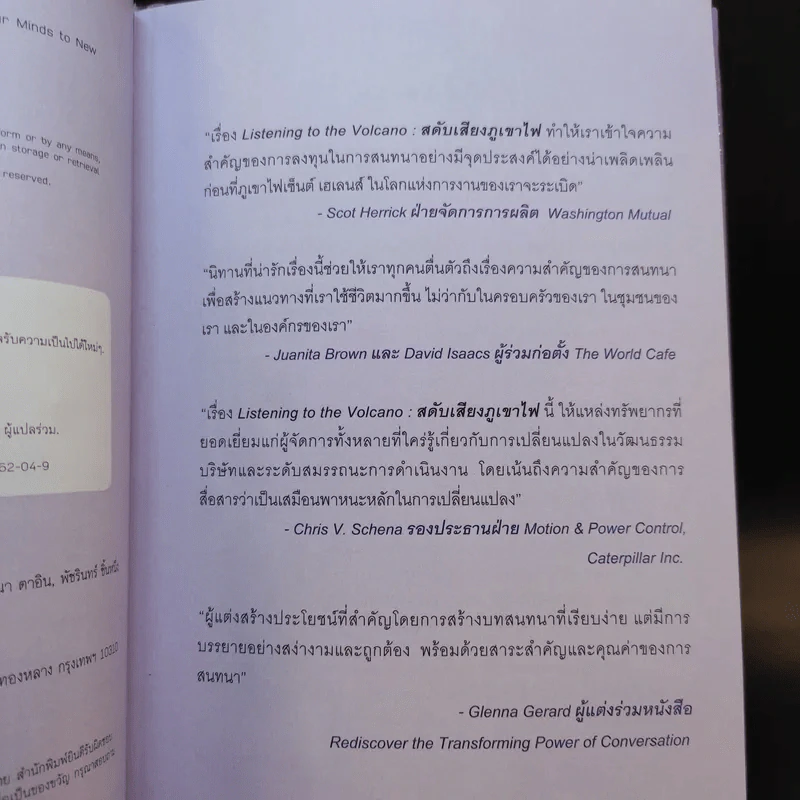 r Minds to New
orm or by any means,
n storage or retrieval
reserved.
รับความเป็นไปได้ใหม่ๆ.
ผู้แปลร่วม.
52-04-9
นา ตาอิน, พัชรินทร์
ทองหลาง กรุงเทพฯ 10310
ย สำนักพิมพ์ยินดีรับผิดชอบ
เป็นของขวัญ กรุณาสอบถาม
“เรื่อง Listening to the Volcano : สดับเสียงภูเขาไฟ ทำให้เราเข้าใจความ
สำคัญของการลงทุนในการสนทนาอย่างมีจุดประสงค์ได้อย่างน่าเพลิดเพลิน
ก่อนที่ภูเขาไฟเซ็นต์ เฮเลนส์ ในโลกแห่งการงานของเราจะระเบิด”
- Scot Herrick ฝ่ายจัดการการผลิต Washington Mutual
“นิทานที่น่ารักเรื่องนี้ช่วยให้เราทุกคนตื่นตัวถึงเรื่องความสำคัญของการสนทนา
เพื่อสร้างแนวทางที่เราใช้ชีวิตมากขึ้น ไม่ว่ากับในครอบครัวของเรา ในชุมชนของ
เรา และในองค์กรของเรา”
- Juanita Brown และ David Isaacs ผู้ร่วมก่อตั้ง The World Cafe
“เรื่อง Listening to the Volcano : สดับเสียงภูเขาไฟ นี้ ให้แหล่งทรัพยากรที่
ยอดเยี่ยมแก่ผู้จัดการทั้งหลายที่ใคร่รู้เกี่ยวกับการเปลี่ยนแปลงในวัฒนธรรม
บริษัทและระดับสมรรถนะการดำเนินงาน โดยเน้นถึงความสำคัญของการ
สื่อสารว่าเป็นเสมือนพาหนะหลักในการเปลี่ยนแปลง”
- Chris V. Schena รองประธานฝ่าย Motion & Power Control,
Caterpillar Inc.
“ผู้แต่งสร้างประโยชน์ที่สำคัญโดยการสร้างบทสนทนาที่เรียบง่าย แต่มีการ
บรรยายอย่างสง่างามและถูกต้อง พร้อมด้วยสาระสำคัญและคุณค่าของการ
สนทนา”
- Glenna Gerard ผู้แต่งร่วมหนังสือ
Rediscover the Transforming Power of Conversation